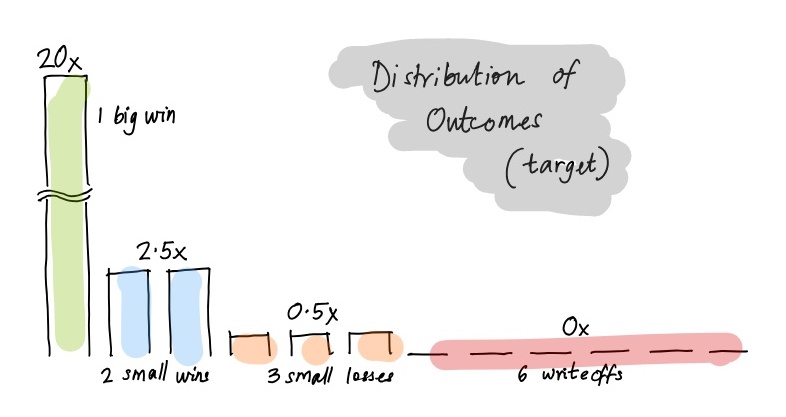 Distribution of
Outcomes
(target)
20x
1 big win
2.5x
2 small wins
0.5x
3 small losses
0x
6 writeoffs